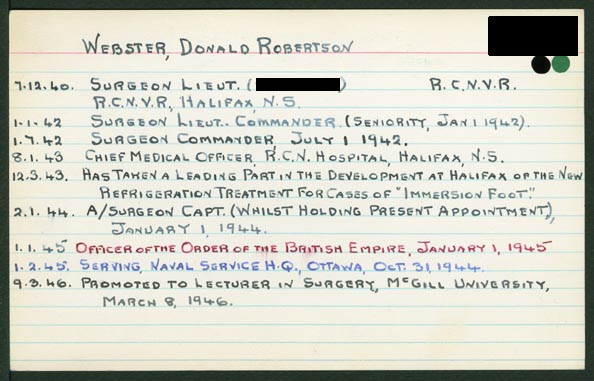 WEBSTER, DONALD ROBERTSON
7.12.40. SURGEON LIEUT. ( ) R.C.N.V.R.
R.C.N.V.R, HALIFAX, N.S.
1.1.42 SURGEON LIEUT. COMMANDER. (SENIORITY, JAN 1 1942).
1.7.42 SURGEON COMMANDER, JULY 1 1942.
8.1.43 CHIEF MEDICAL OFFICER, R.C.N. HOSPITAL, HALIFAX, N.S.
12.3.43. HAS TAKEN A LEADING PART IN THE DEVELOPMENT AT HALIFAX OF THE NEW
REFRIGERATION TREATMENT FOR CASES OF "IMMERSION FOOT."
2.1.44. A/SURGEON CAPT. (WHILST HOLDING PRESENT APPOINTMENT),
JANUARY 1, 1944.
1.1.45 OFFICER OF THE ORDER OF THE BRITISH EMPIRE, JANUARY 1, 1945
1.2.45. SERVING, NAVAL SERVICE H.Q., OTTAWA, OCT. 31, 1944.
9.3.46. PROMOTED TO LECTURER IN SURGERY, MCGILL UNIVERSITY,
MARCH 8, 1946.